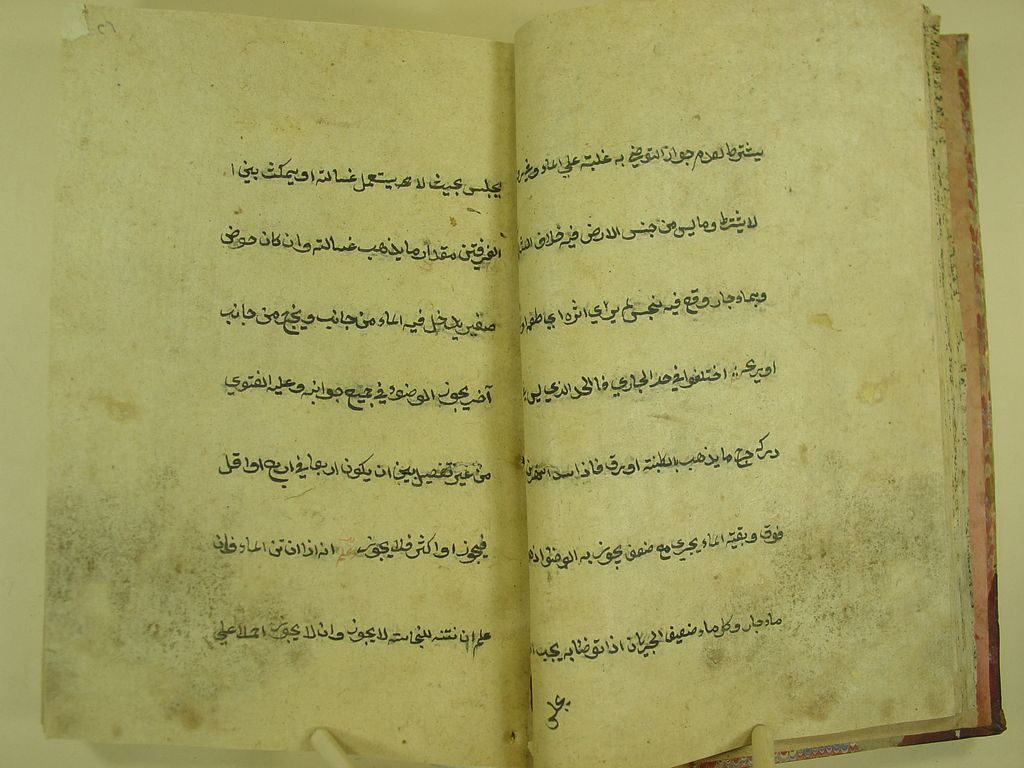 ٢٦
يشترط لعدم جواز التوضي به غلبته علي الماء وغيره
لا يشترط وما ليس من جنس الارض فيه خلاف
وبماء جار وقع فيه نجس لم ير اي اثره اي طعمه او
اختلفوا في حد الجاري فالحد الذي ليس
دركه حرج ما يذهب او ورق فاذا سد النهر من
فوق وبقية الماء يجري مع ضعف يجوز به الوضؤ
ماء جار وكل ماء ضعيف الجريان اذا توضا به يجب
يجلس بحيث لا يستعمل غسالته او يمكث بين ا
الغرفتين مقدار ما يذهب غسالته وان كان حوض
صغير يدخل فيه الماء من جانب ويخرج من جانب
آخر يجوز الوضوء في جميع جوانبه وعليه الفتوي
من غير تفصيل بين ان يكون اربعا في اربع او اقل
فيجوز او اكثر فلا يجوز انه اذا انتن الماء فان
علم ان نتنه للنجاسة لا يجوز وان لا يجوز علي